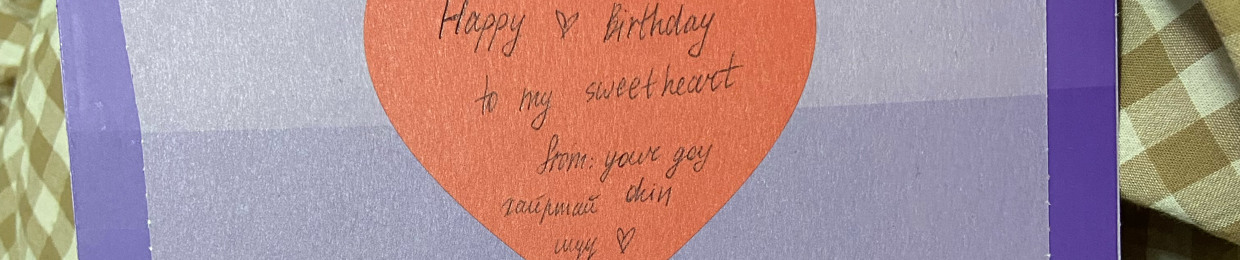 Happy ♡ Birthday
to my sweetheart
from: your goy
хайртай ohin
шүү ♡